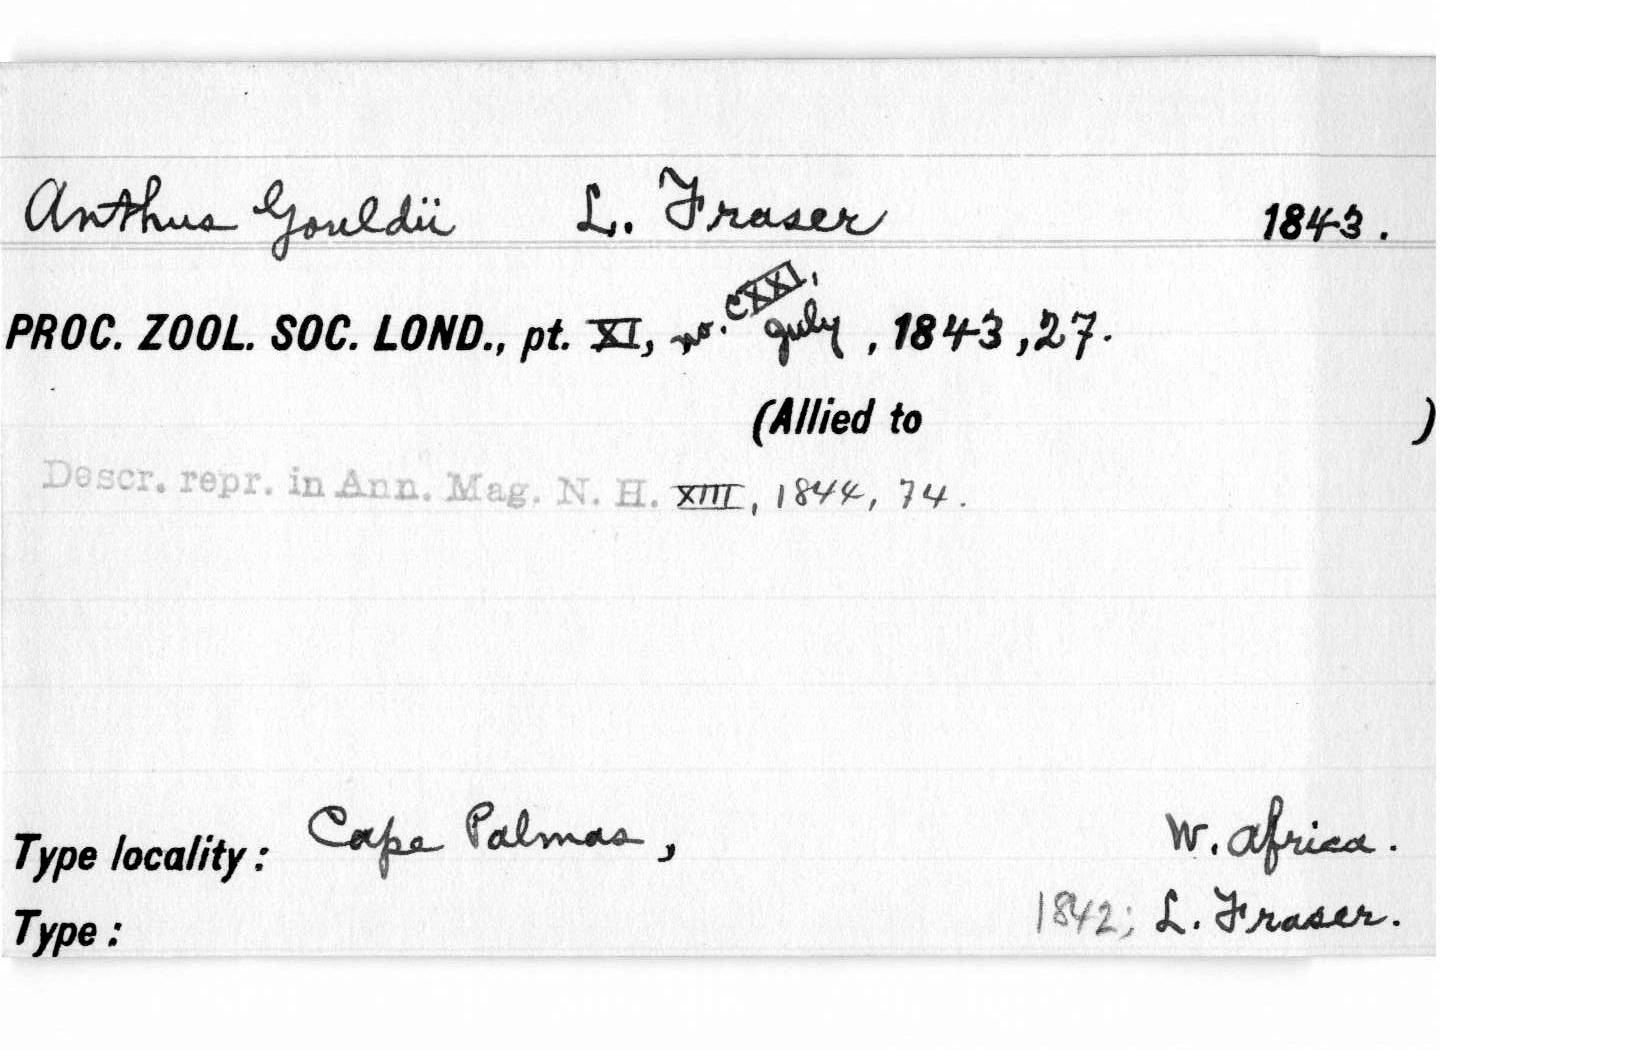 Anthus Gouldii L. Fraser 1843.
PROC. ZOOL. SOC. LOND., pt. XI, no. CXXI, July, 1843, 27.
(Allied to )
Descr. repr. in Ann. Mag. N. H. XIII, 1844, 74.
Type locality: Cape Palmas, W. Africa.
Type: 1842; L. Fraser.